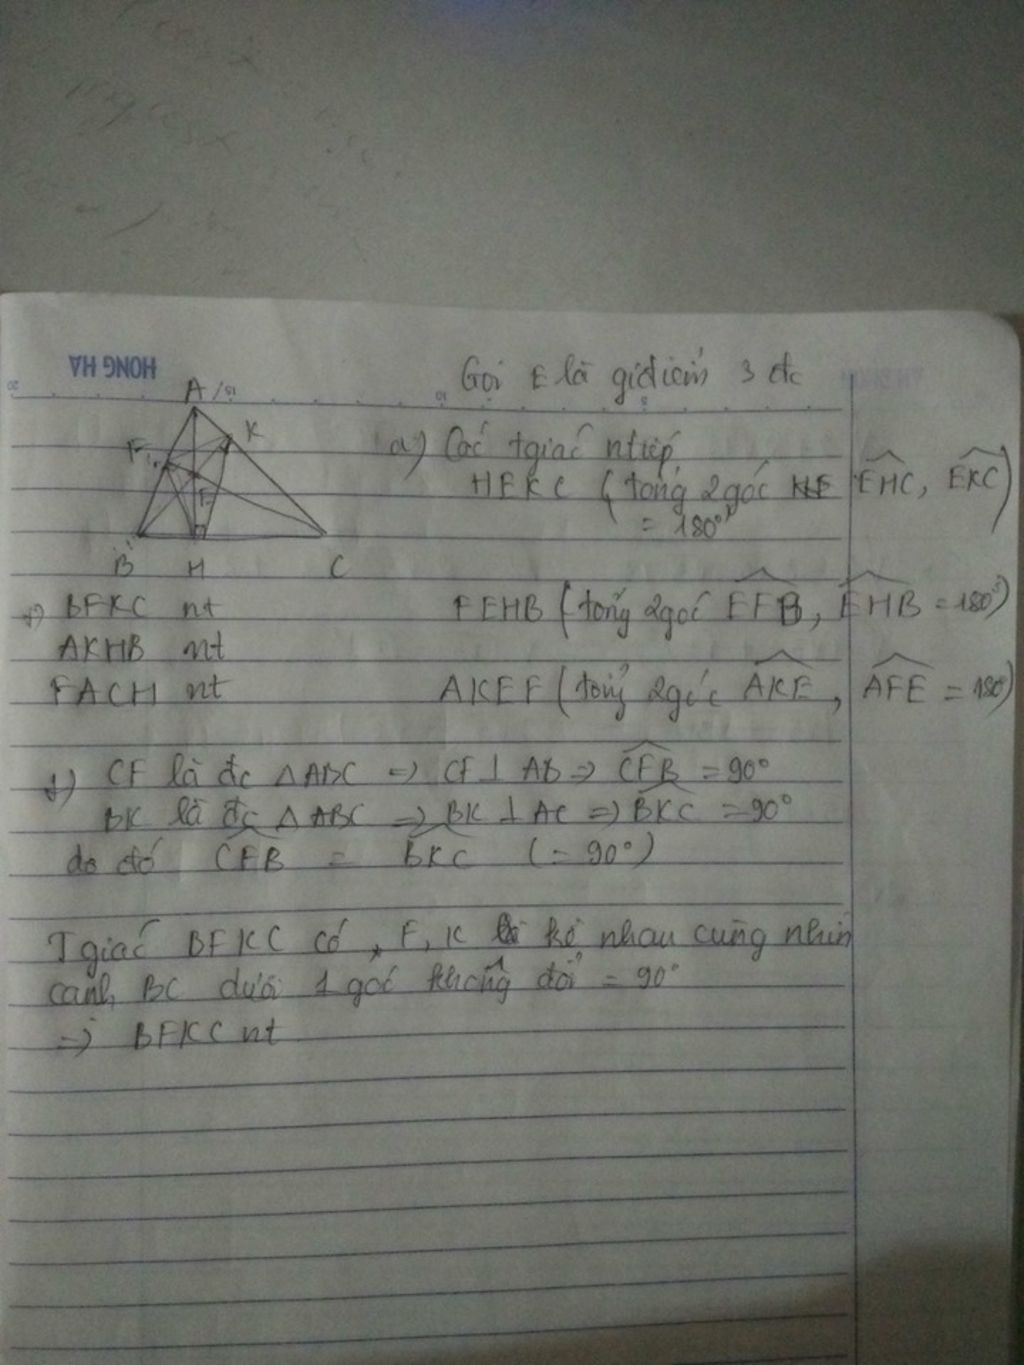 HONG HA
Gọi E là giđiểm 3 đc
A
K
F
E
B
H
C
a) Các tgiác ntiếp
HEKC (tổng 2 góc EHC, EKC
= 180°)
+) BFKC nt
FEHB (tổng 2 góc EFB, EHB = 180°)
AKHB nt
FACH nt
AKEF (tổng 2 góc AKE, AFE = 180)
+) CF là đc △ABC => CF ⊥ AB => CFB = 90°
BK là đc △ABC => BK ⊥ AC => BKC = 90°
do đó CFB = BKC (= 90°)
Tgiác BFKC có, F, K kề nhau cùng nhìn
cạnh BC dưới 1 góc không đổi = 90°
=> BFKC nt